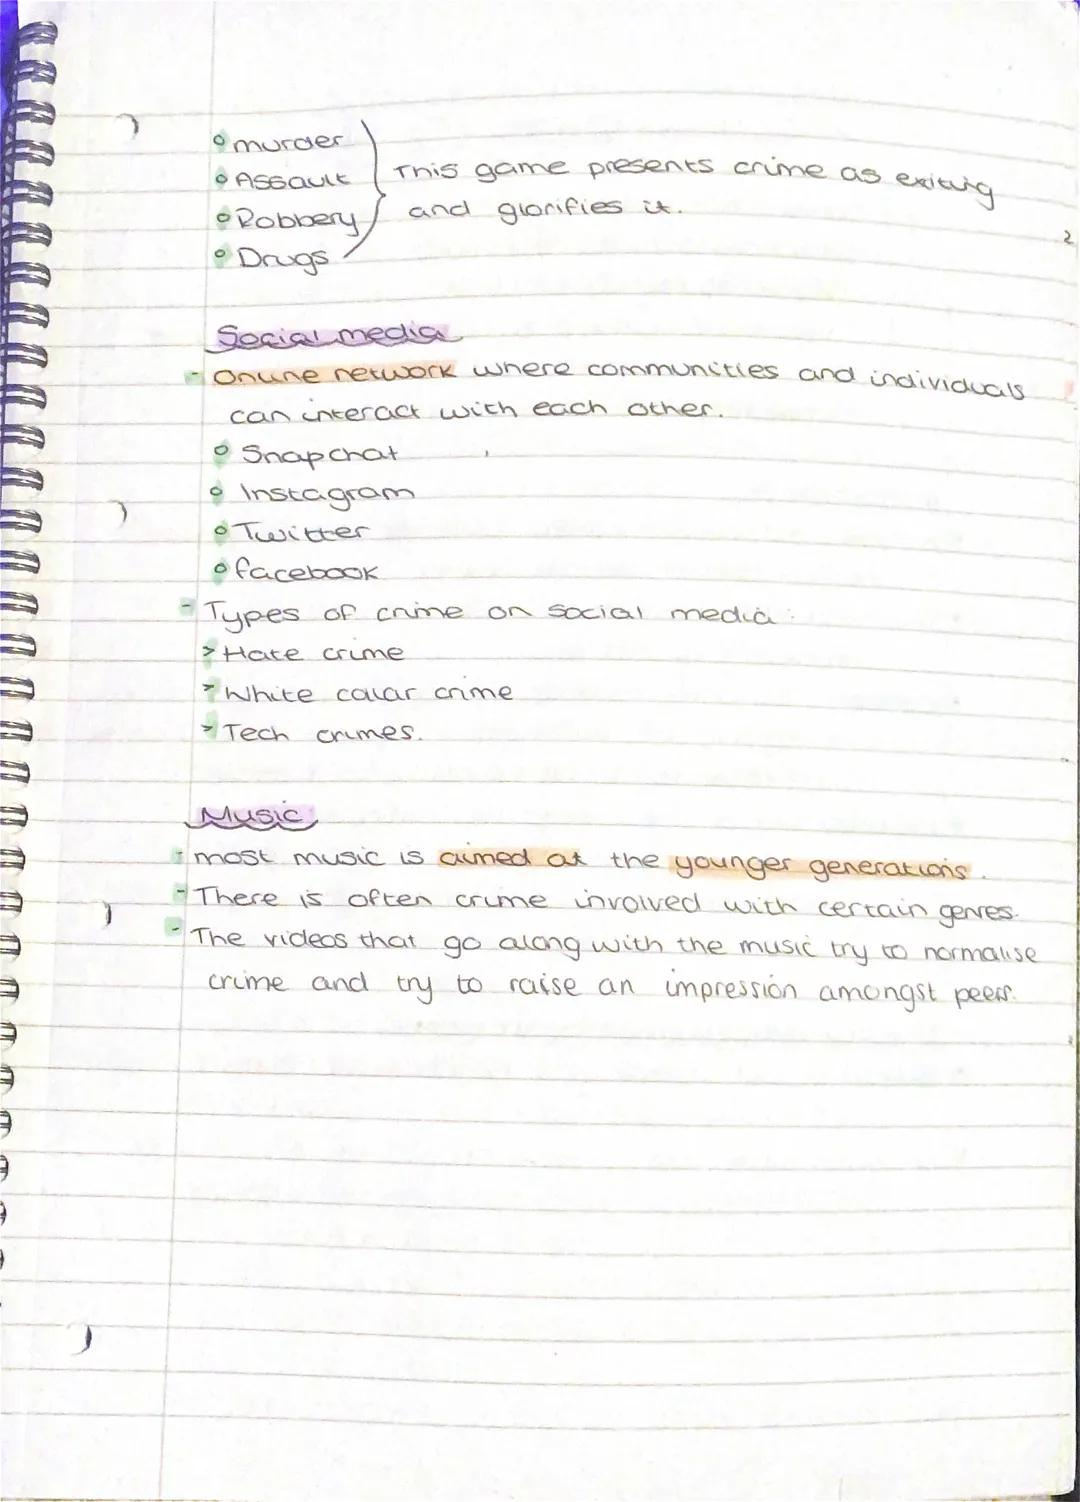 murder
Assault
This game presents crime as exiting
Robbery
and glorifies it.
Drugs
2
Social media
- Online network where communities and individuals
can interact with each other.
Snapchat
Instagram
Twitter
facebook
- Types of crime on social media:
> Hate crime
> White collar crime
> Tech crimes.
Music
- most music is aimed at the younger generations.
- There is often crime involved with certain genres.
- The videos that go along with the music try to normalise
crime and try to raise an impression amongst peers.